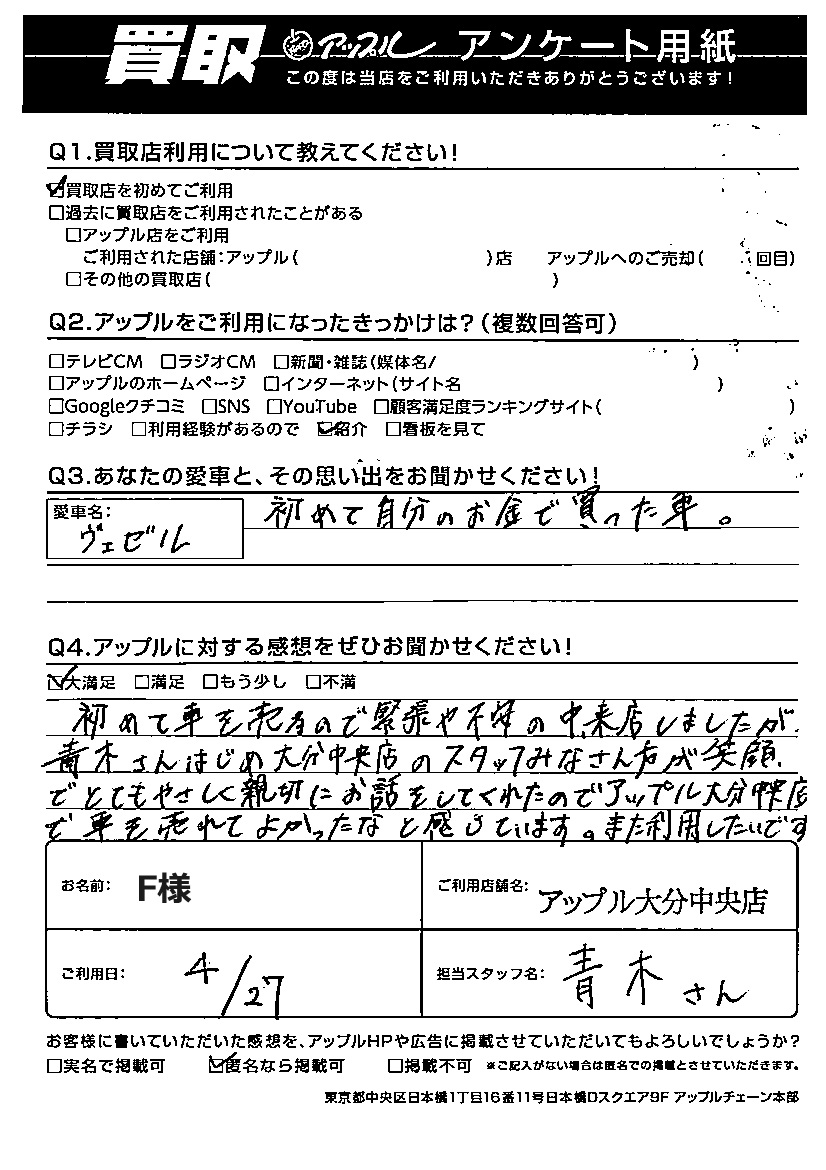 買取 アップル アンケート用紙
この度は当店をご利用いただきありがとうございます!
Q1.買取店利用について教えてください!
☑買取店を初めてご利用
□過去に買取店をご利用されたことがある
□アップル店をご利用
ご利用された店舗:アップル( )店 アップルへのご売却( 回目)
□その他の買取店( )
Q2.アップルをご利用になったきっかけは?(複数回答可)
□テレビCM □ラジオCM □新聞・雑誌(媒体名/ )
□アップルのホームページ □インターネット(サイト名 )
□Googleクチコミ □SNS □YouTube □顧客満足度ランキングサイト( )
□チラシ □利用経験があるので ☑紹介 □看板を見て
Q3.あなたの愛車と、その思い出をお聞かせください!
愛車名:
ヴェゼル
初めて自分のお金で買った車。
Q4.アップルに対する感想をぜひお聞かせください!
☑大満足 □満足 □もう少し □不満
初めて車を売るので緊張や不安の中、来店しましたが、
青木さんはじめ大分中央店のスタッフみなさん方が笑顔
でとてもやさしく親切にお話をしてくれたのでアップル大分中央店
で車を売れてよかったなと感じています。また利用したいです
お名前: F様
ご利用店舗名: アップル大分中央店
ご利用日: 4/27
担当スタッフ名: 青木さん
お客様に書いていただいた感想を、アップルHPや広告に掲載させていただいてもよろしいでしょうか?
□実名で掲載可 ☑匿名なら掲載可 □掲載不可 ※ご記入がない場合は匿名での掲載とさせていただきます。
東京都中央区日本橋1丁目16番11号日本橋Dスクエア9F アップルチェーン本部